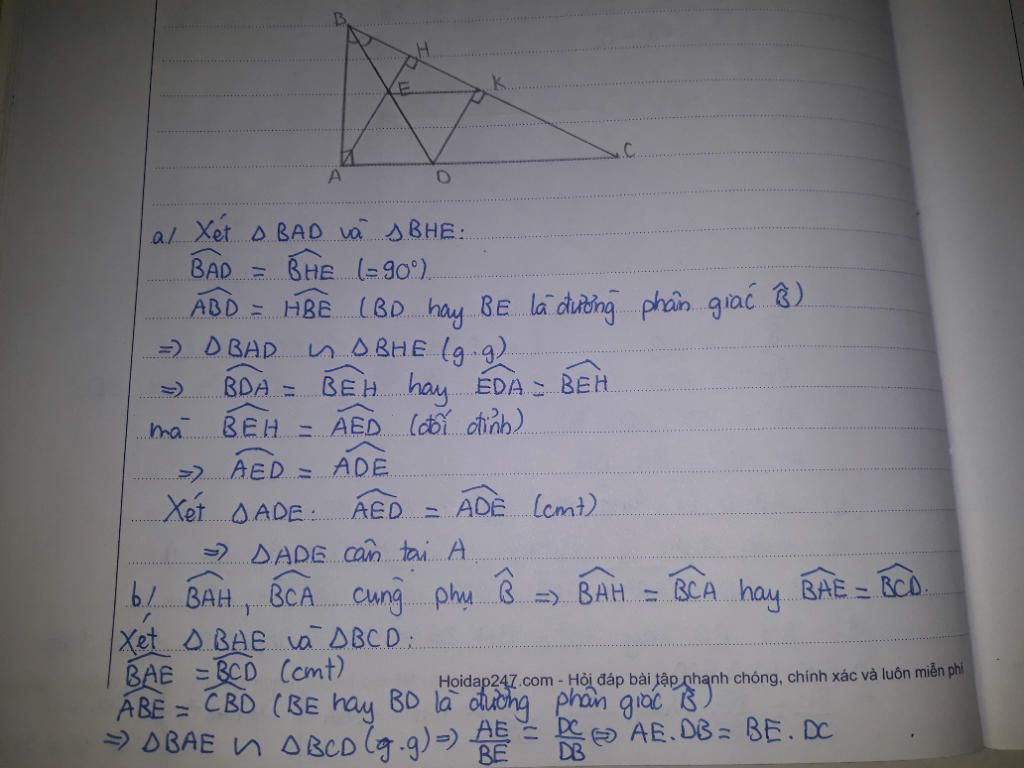 B
H
E
K
C
A
D
a/ Xét △BAD và △BHE:
$\widehat{BAD}$ = $\widehat{BHE}$ (=90°)
$\widehat{ABD}$ = $\widehat{HBE}$ (BD hay BE là đường phân giác $\widehat{B}$)
=> △BAD ∽ △BHE (g.g)
=> $\widehat{BDA}$ = $\widehat{BEH}$ hay $\widehat{EDA}$ = $\widehat{BEH}$
mà $\widehat{BEH}$ = $\widehat{AED}$ (đối đỉnh)
=> $\widehat{AED}$ = $\widehat{ADE}$
Xét △ADE: $\widehat{AED}$ = $\widehat{ADE}$ (cmt)
=> △ADE cân tại A
b/ $\widehat{BAH}$, $\widehat{BCA}$ cùng phụ $\widehat{B}$ => $\widehat{BAH}$ = $\widehat{BCA}$ hay $\widehat{BAE}$ = $\widehat{BCD}$.
Xét △BAE và △BCD:
$\widehat{BAE}$ = $\widehat{BCD}$ (cmt)
Hoidap247.com - Hỏi đáp bài tập nhanh chóng, chính xác và luôn miễn phí
$\widehat{ABE}$ = $\widehat{CBD}$ (BE hay BD là đường phân giác $\widehat{B}$)
=> △BAE ∽ △BCD (g.g) => $\frac{AE}{BE}$ = $\frac{DC}{DB}$ <=> AE.DB = BE.DC